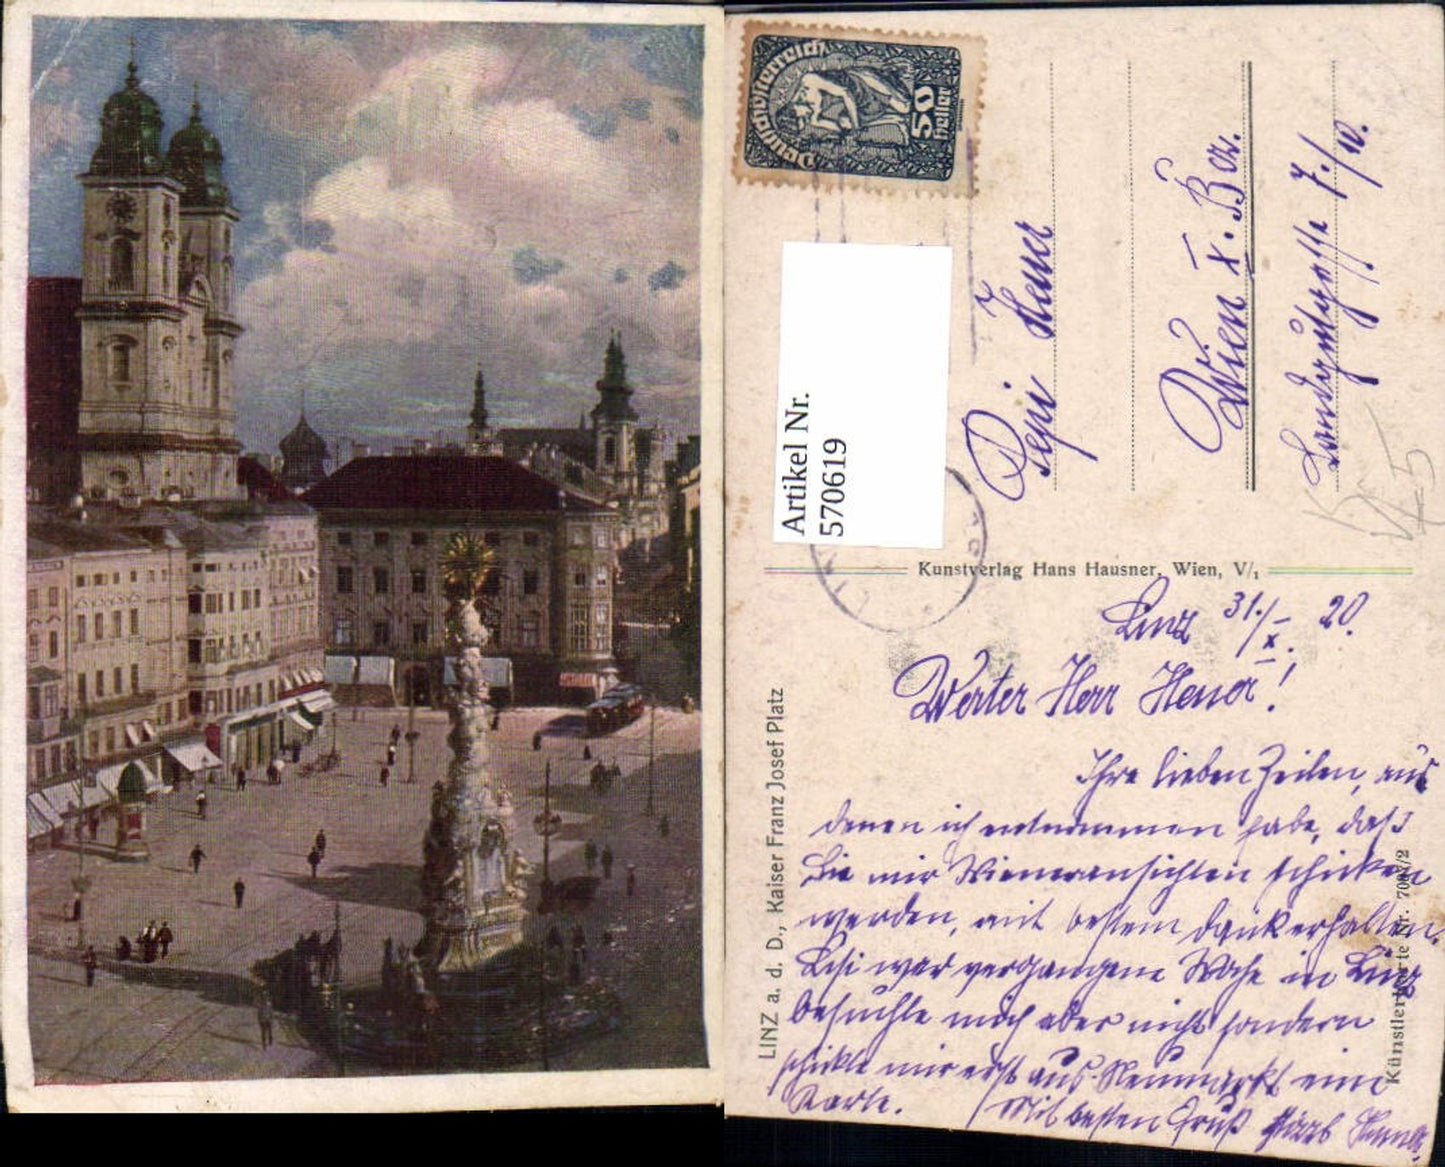 Deutschösterreich
50
Heller
Artikel Nr.
570619
Pepi
Wien X. Bez.
7./IV.
Kunstverlag Hans Hausner, Wien, V/1
LINZ a. d. D., Kaiser Franz Josef Platz
Künstlerkarte Nr. 7007/2
Linz 31./X. 20.
Werter Herr
Ihre lieben Zeilen, aus
denen ich entnommen habe, daß
Sie mir Wieneransichten schicken
werden, mit bestem Dank erhalten.
war vergangene Woche in Linz
besuchte mich aber nicht sondern
schickte mir erst aus Neumarkt eine
Karte.
Mit besten Gruß